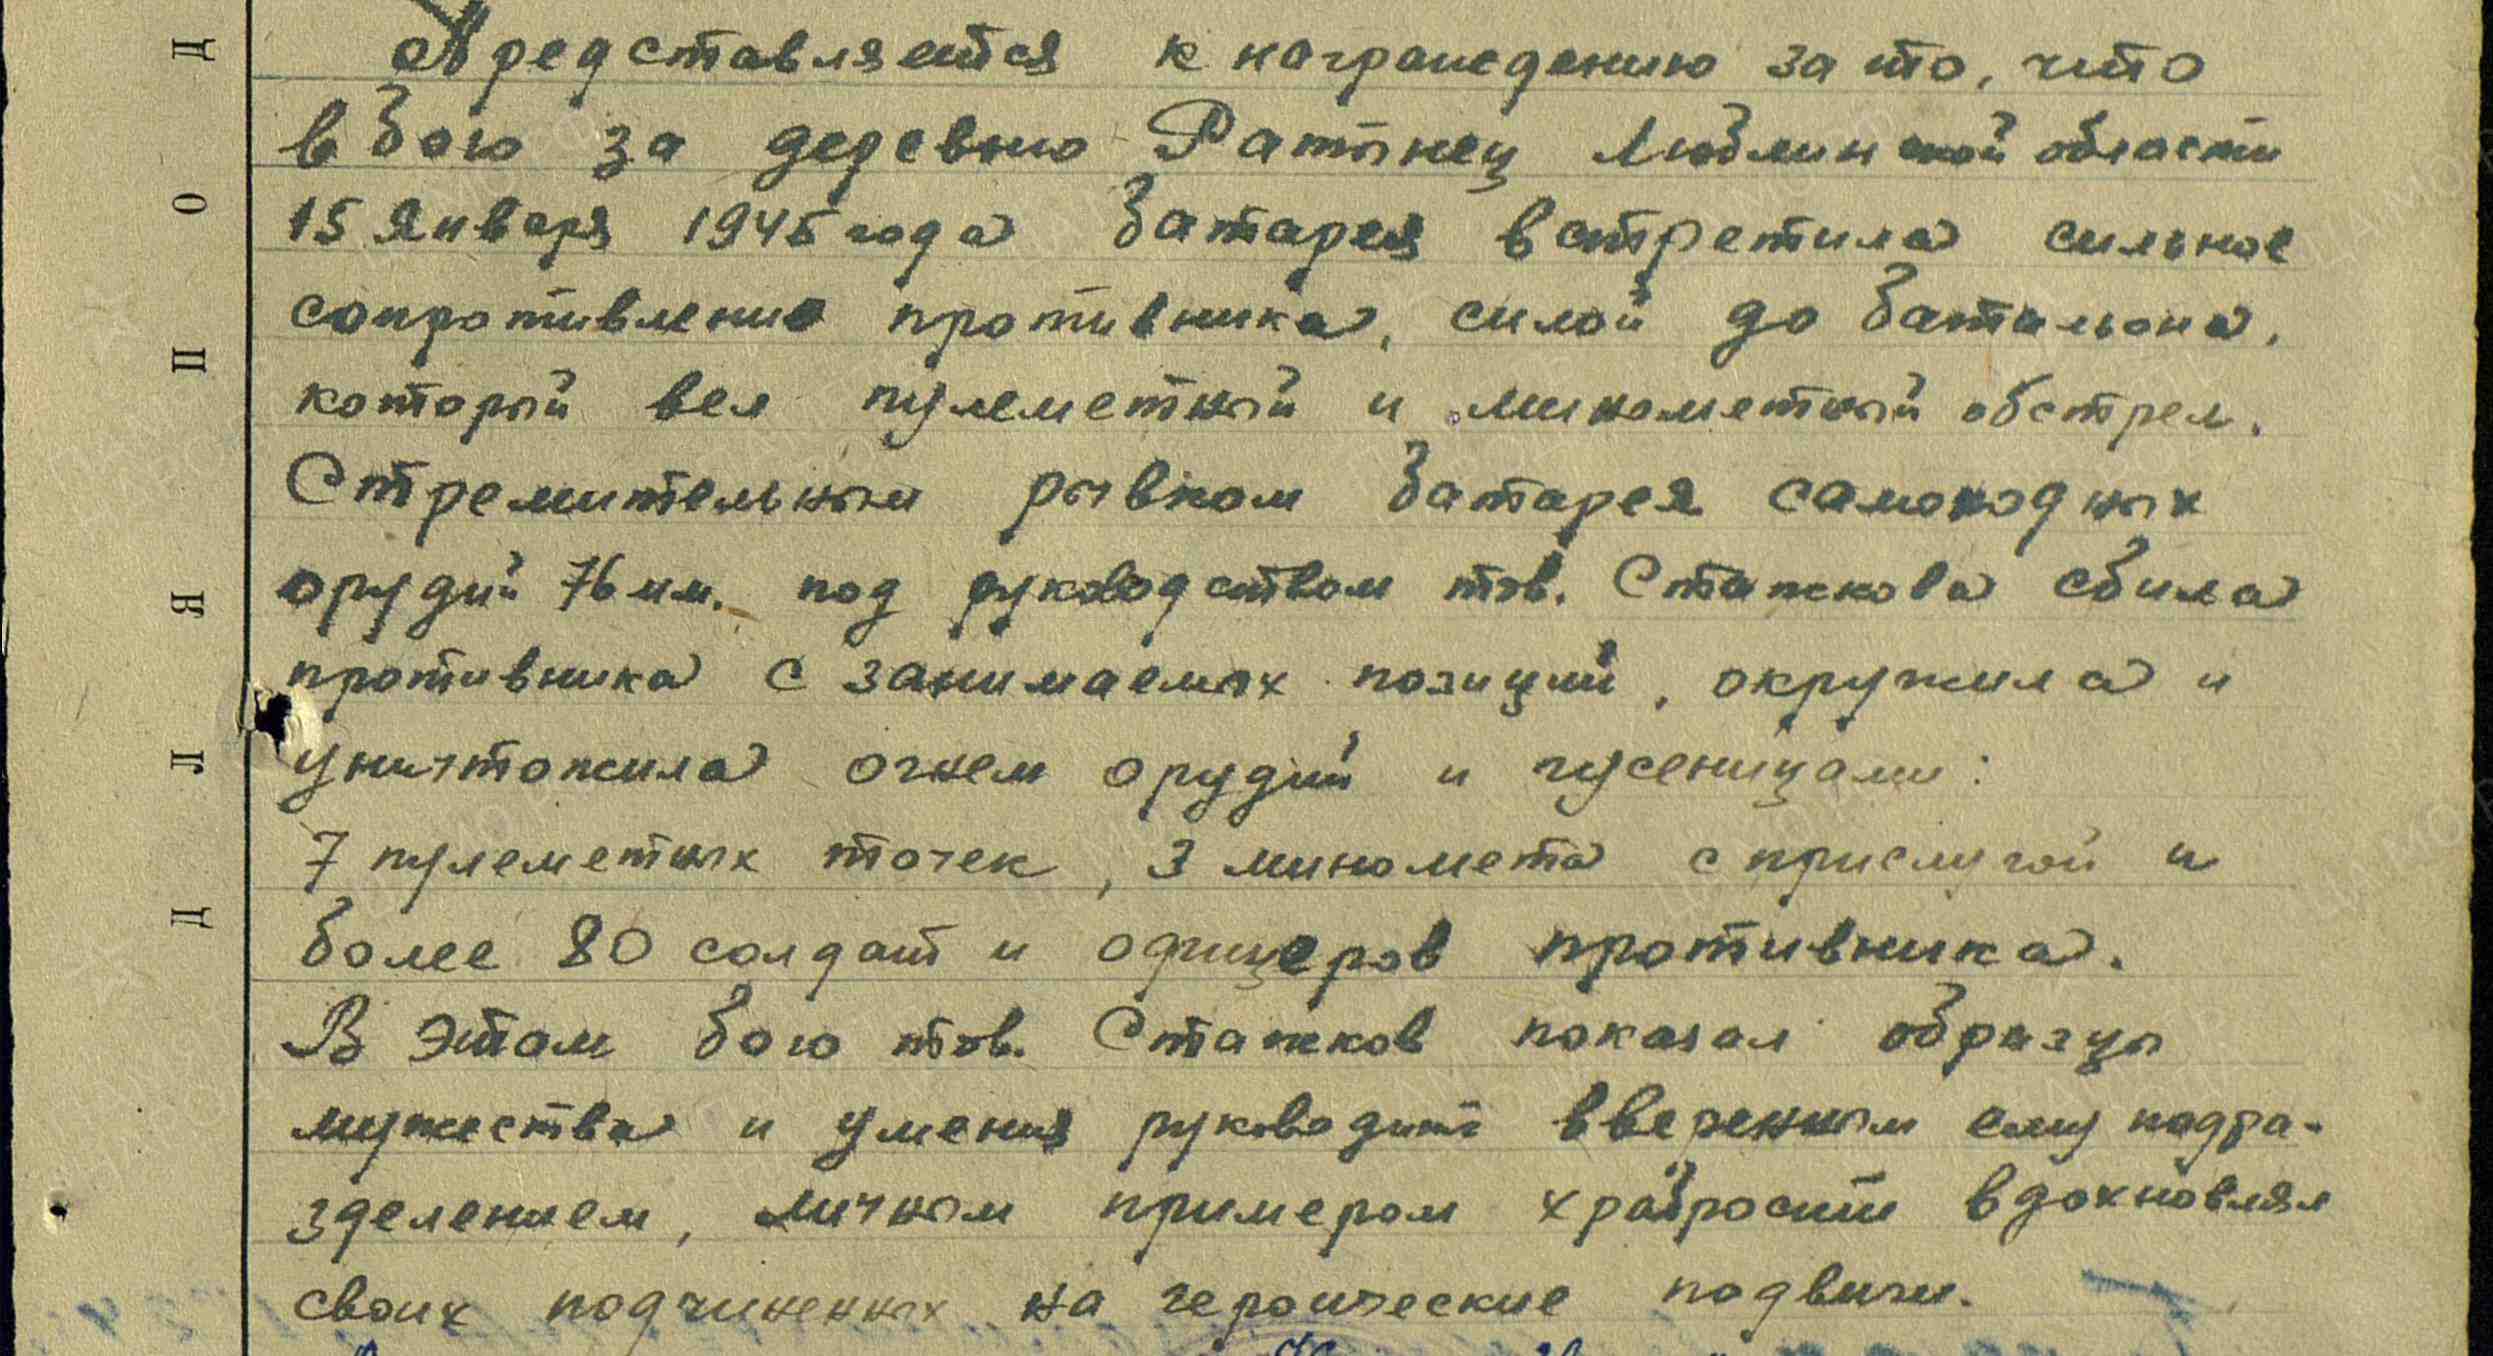 Представляется к награждению за то, что
в бою за деревню Ратынец Люблинской области
15 января 1945 года батарея встретила сильное
сопротивление противника, силой до батальона,
который вел пулеметный и минометный обстрел.
Стремительным рывком батарея самоходных
орудий 76 мм. под руководством тов. Стажкова сбила
противника с занимаемых позиций, окружила и
уничтожила огнем орудий и гусеницами:
7 пулеметных точек, 3 миномета с прислугой и
более 80 солдат и офицеров противника.
В этом бою тов. Стажков показал образцы
мужества и умения руководить вверенным ему подра-
зделением, личным примером храбрости вдохновлял
своих подчиненных на героические подвиги.
Д
О
П
Я
Л
Д